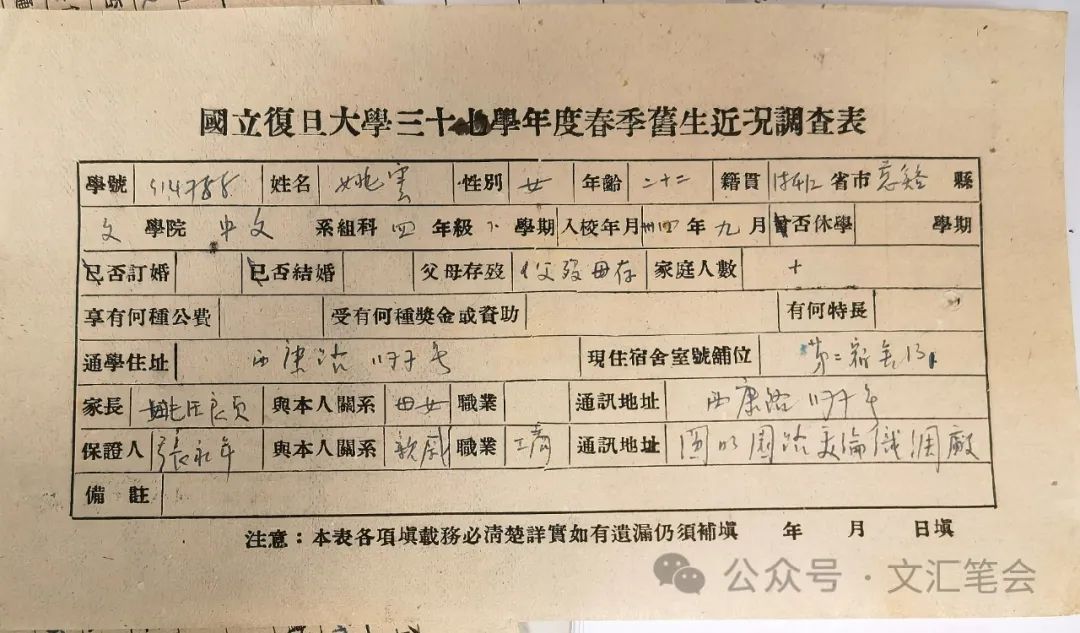 國立復旦大學三十七學年度春季舊生近況調查表
學號 姓名 姚雲 性別 女 年齡 二十二 籍貫 浙江 省市 慈谿 縣
文 學院 中文 系組科 四 年級 下 學期 入校年月 卅四 年 九 月 曾否休學 學期
已否訂婚 已否結婚 父母存歿 父歿母存 家庭人數 十
享有何種公費 受有何種獎金或資助 有何特長
通學住址 西康路 號 現住宿舍室號舖位 第二宿舍 131
家長 姚汪辰貞 與本人關系 母女 職業 通訊地址 西康路 號
保證人 張永年 與本人關系 親戚 職業 工商 通訊地址 圓明園路美倫織綢廠
備註
注意：本表各項填載務必清楚詳實如有遺漏仍須補填 年 月 日填
公众号·文汇笔会